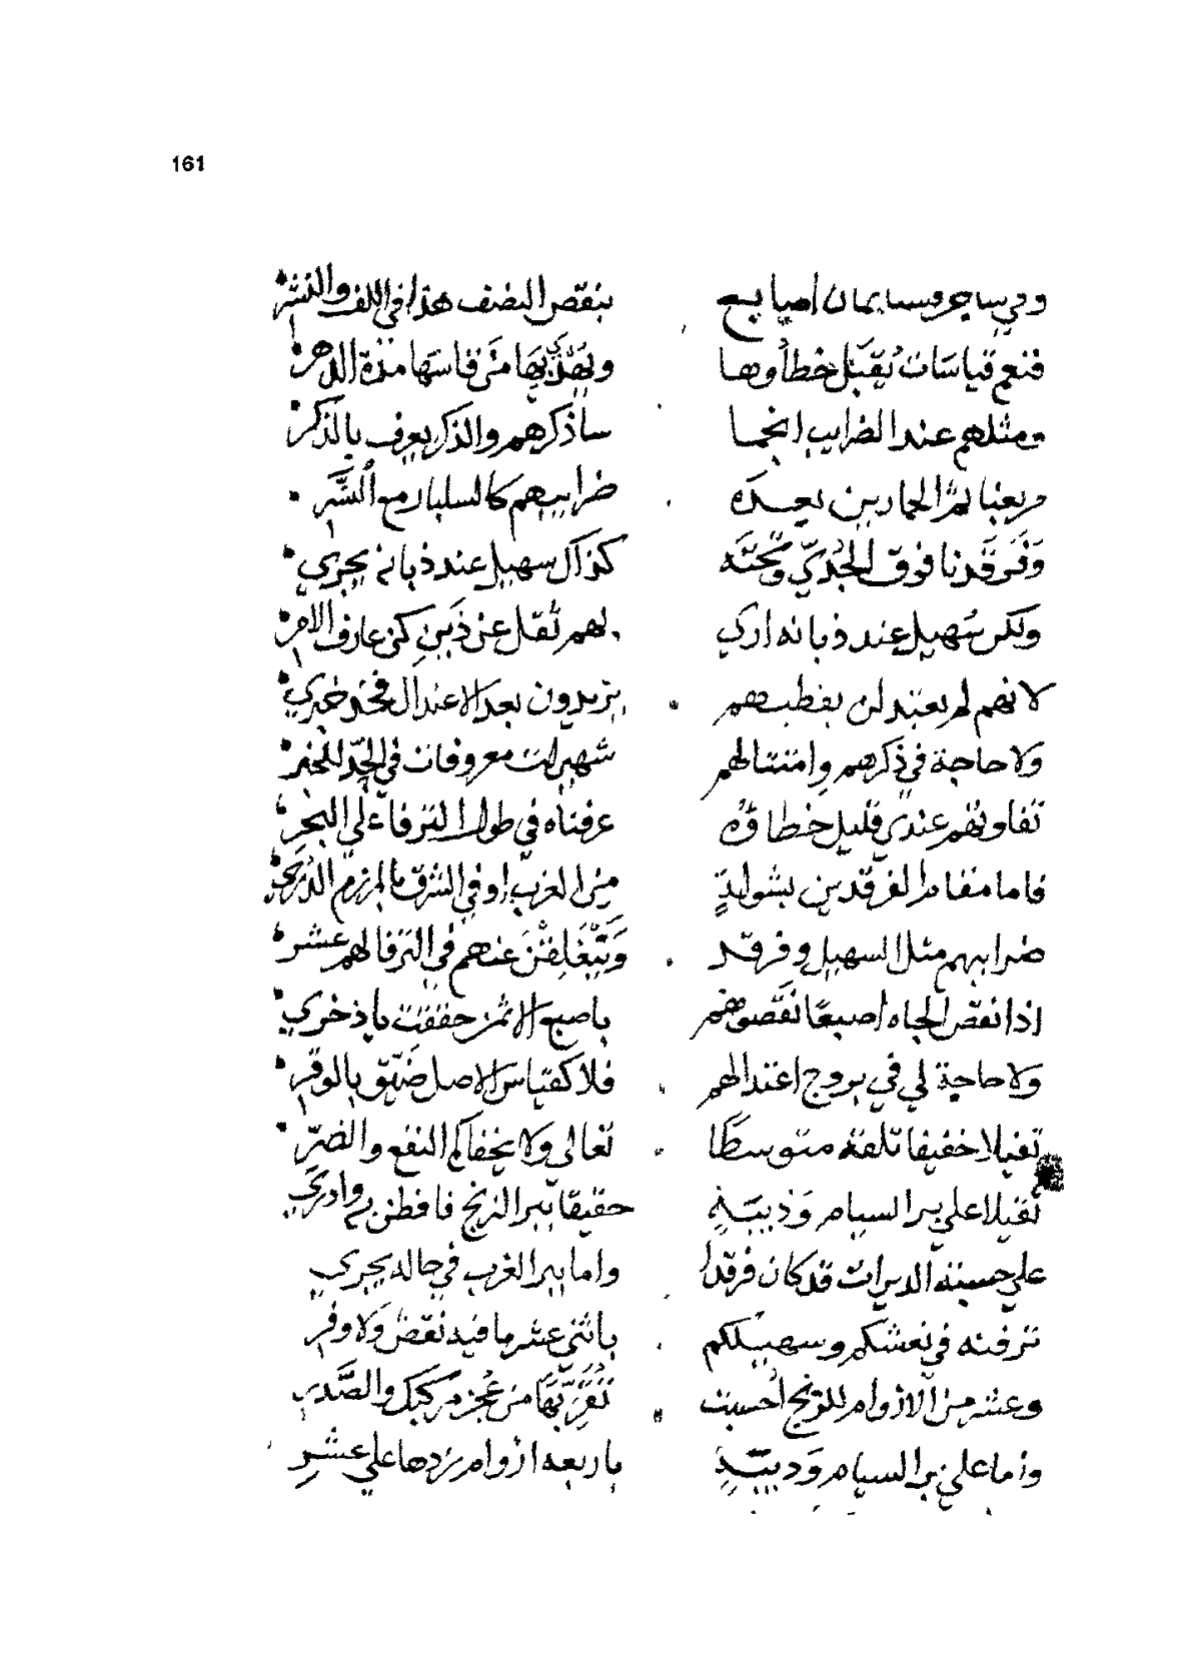 161
وفي ساجر وسمايمان اصابيع بنقص النصف هذا في اللف والنشر
فنعم قياسات يقبل خطاوها ويهدي بها متى قاسها مدة الدهر
ومثلهم عند الضرايب انجما ساذكرهم والذكر يعرف بالذكر
مربعنا ثم الحمارين بعده ضرابيهم كالسلبار مع النسر
وفرقدنا فوق الجدي وتحته كذا ال سهيل عند ذبانه يجري
ولكن سهيل عند ذبانه ادري لهم ثقل عن ذين كن عارف الامر
لانهم لم يعتبد لن بقطبهم يزيدون بعد الاعتدال فخذ خبري
ولا حاجة في ذكرهم وامتثالهم شهيرات معروفات في الجد للحفر
تفاوتهم عندي قليل خطاؤه عرفناه في طول الترفا على البحر
فاما مغامرا لفرقدين بشولة من الغرب او في الشرق بالمرزم الدري
ضرابهم مثل السهيل وفرقد وتبغلقن عنهم في الترفا لهم عشر
اذا نقص الجاه اصبعا نقصوهم باصبع الاثمن حققت باذخري
ولا حاجة لي في بروج اعتدالهم فلا كقياس الاصل ضيق بالوقر
ثقيلا خفيفا تلقه متوسطا تعالى ولا يخفاكم النفع والضر
ثقيلا على بر السيام وذيبة حقيقا ببر الزنج فافطن به وادري
على حسبنه الديرات قد كان فرقدا واما ببر الغرب في حاله يجري
ترفنه في نعشكم وسهيلكم باثنى عشر ما فيه نقص ولا وفر
وعشر من الازوام للزنج احسبت تقربها من عجز مركبك والصدر
واما على بر السيام وديبة باربعه ازوام نزدها على عشر